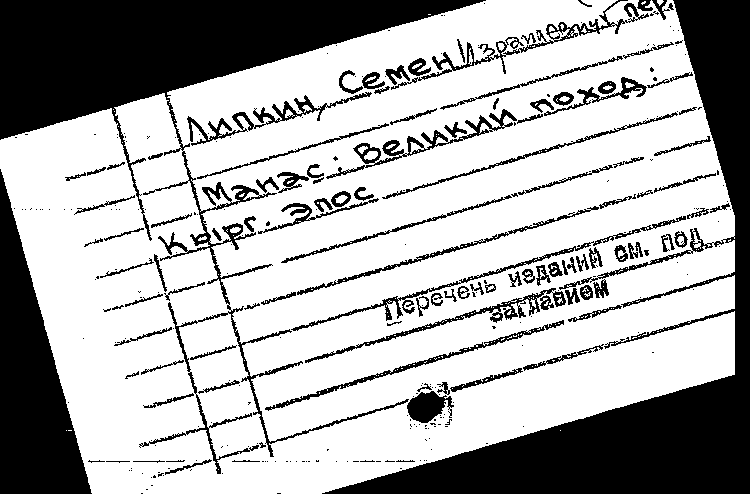 Липкин, Семен Израилевич, пер.
Манас: Великий поход:
Кырг. эпос
Перечень изданий см. под
заглавием